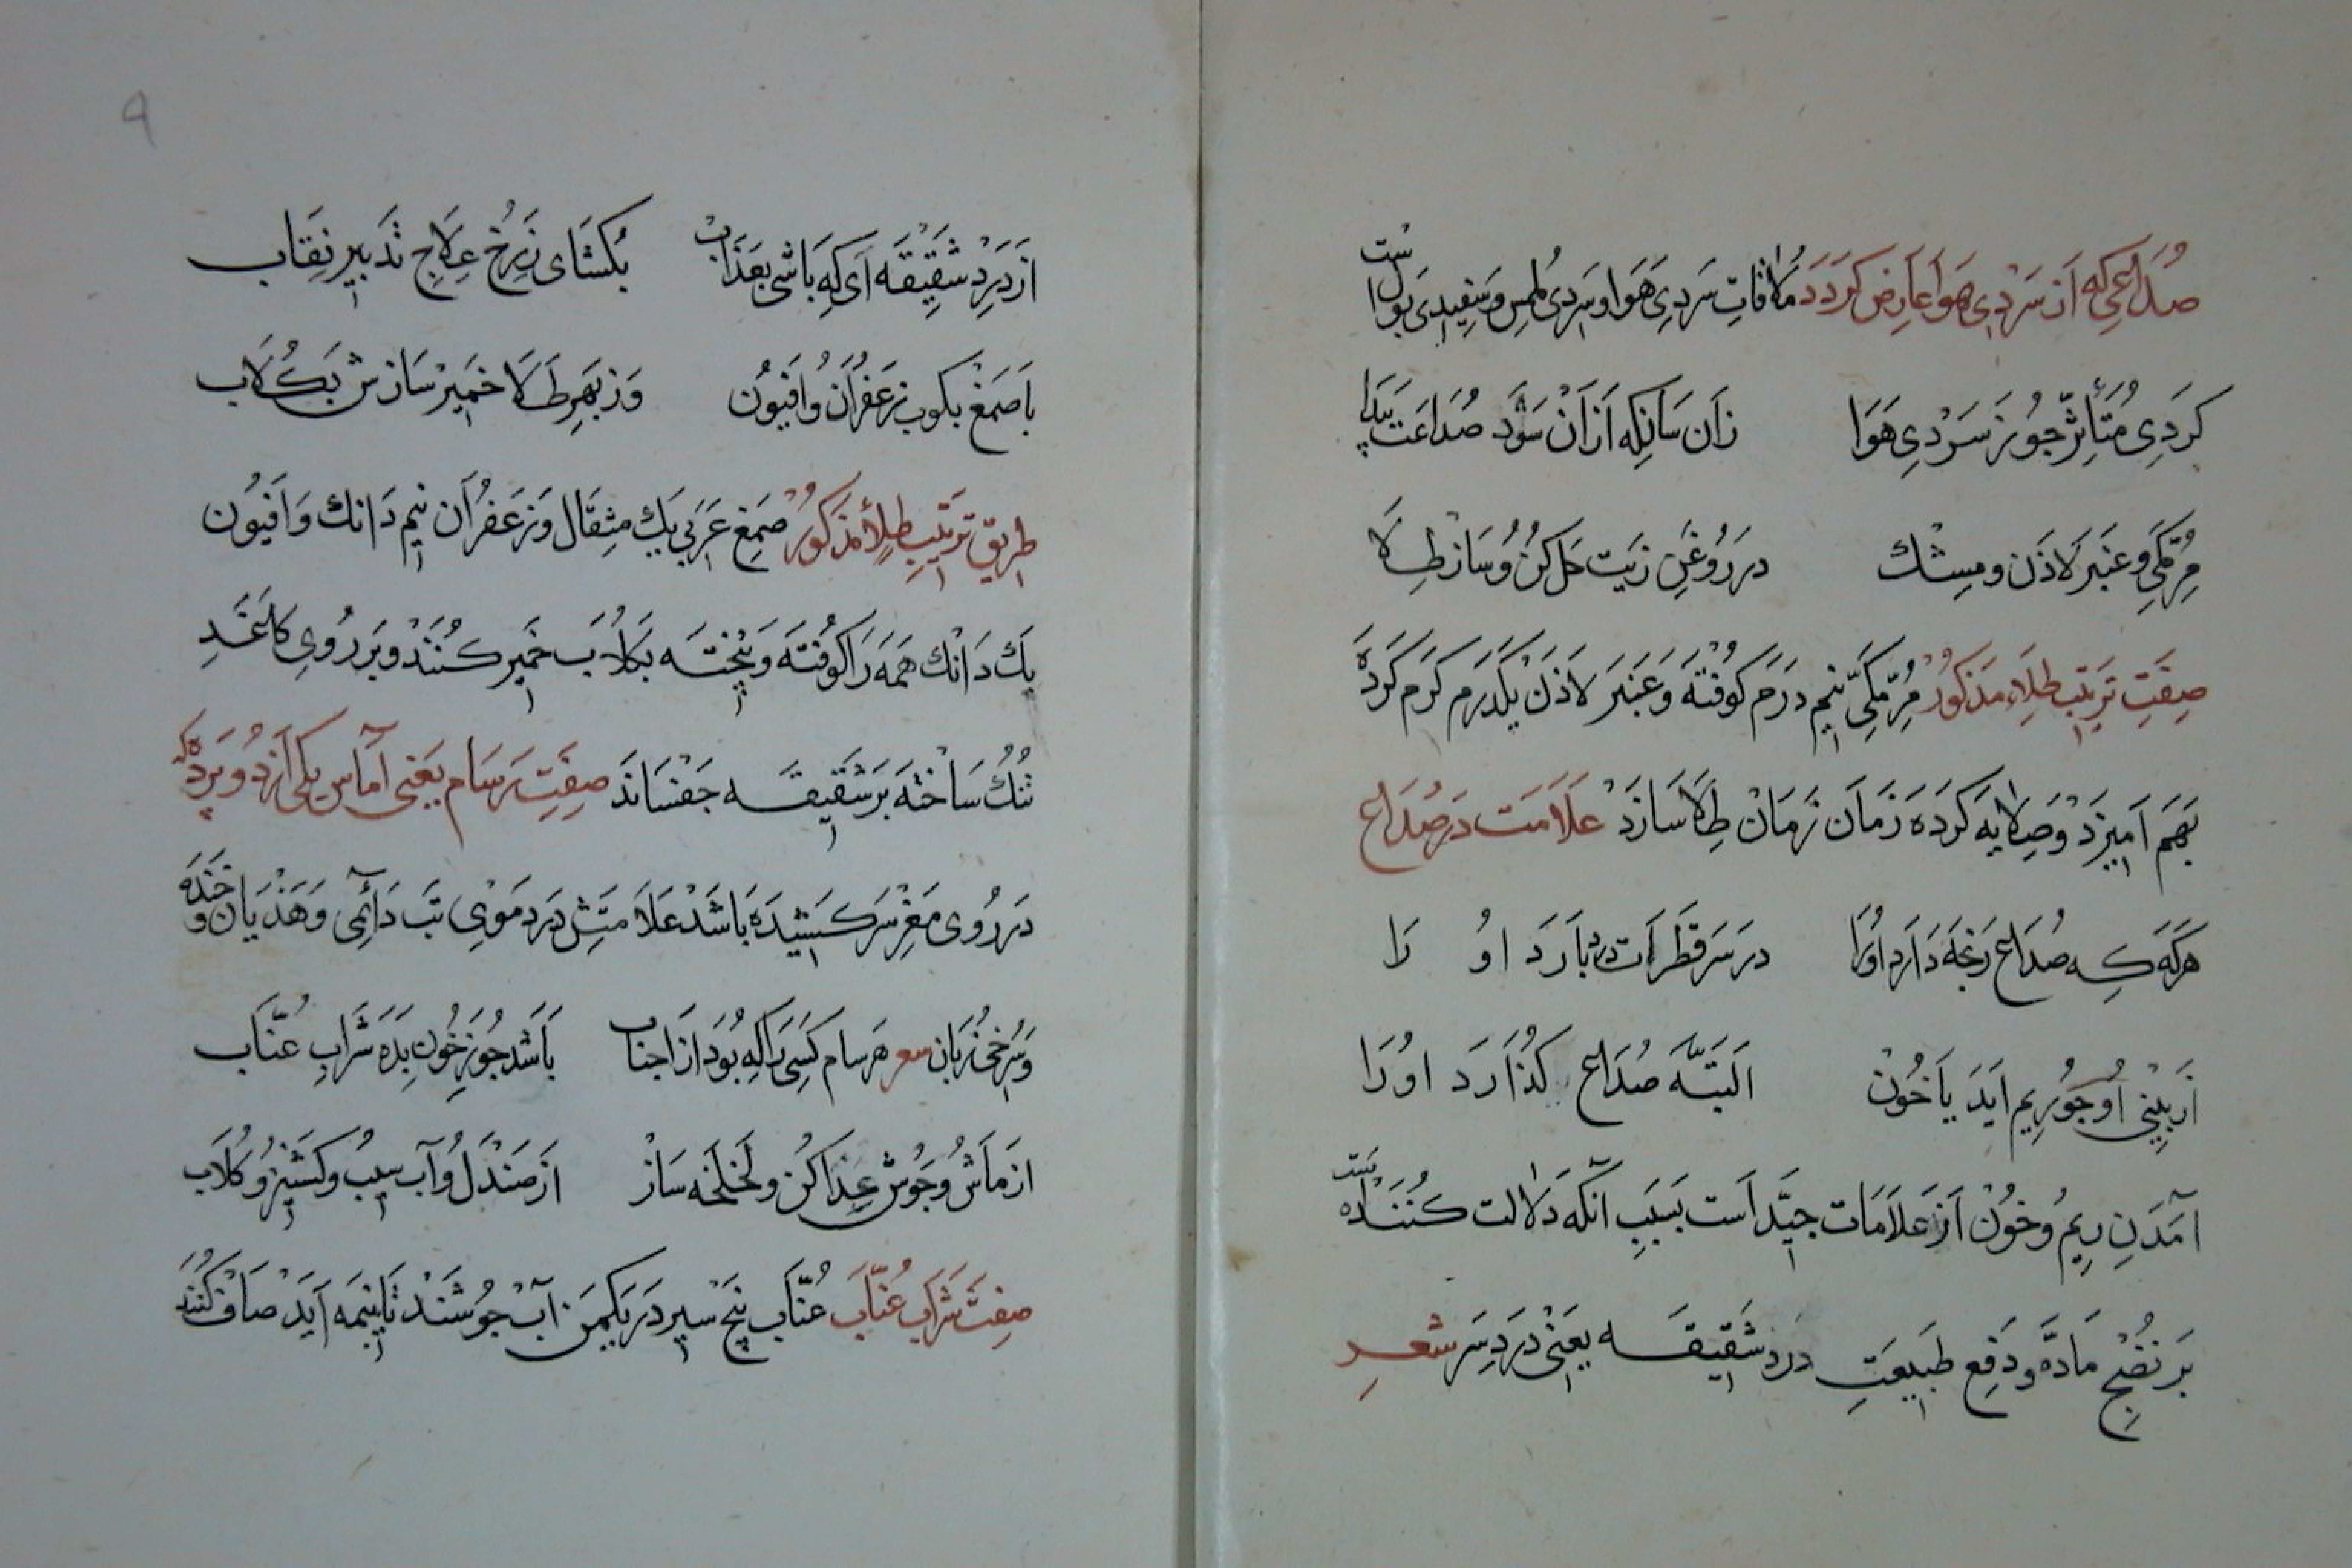 صُدَاعِی که اَز سَرْدِی هَوَا عَارِض کَردَد مُلاقاتِ سَردِی هَوَا و سَردِی مُلمِس وَ سَفِیدِی بَول اُست
کَردِی مُتَأثِّر چُو ز سَرْدِی هَوَا زَان سَانکِه اَزانْ شَوَد صُدَاعَت پَیدَا
مُرِّمَکِی و عَنبَر لَاذَن و مِسْك دَر رُوغَنِ زَیت حَل کُنْ وُ سَاز طِلَا
صِفَتِ تَرتِیبِ طِلَاءِ مَذکُورْ مُرِّمَکِّی نِیم دِرَم کُوفْتَه وَ عَنبَر لَاذَن یَکدِرَم کَرم کَردَه
بَهَم اَمِیزَد وَ صِلایَه کَردَه زَمَان زَمَانْ طِلَا سَازَدْ عَلَامَت دَر صُدَاع
هَرکَه کِه صُدَاع رَنجَه دَارَد اُورَا دَر سَر قَطَرَات دَرد بَارَد اوُ رَا
اَز بِینِیِ اُو چُو رِیم اَیَد یَا خُونْ اَلبَتَّه صُدَاع کُذَارَد اوُرَا
آمَدَنِ رِیم وُ خُوْن اَز عَلَامَات جَیِّد اَست بَسَبَبِ آنکِه دَلالت کُنَنْدَه است
بَر نُضْجِ مَادَّه و دَفعِ طَبِیعَتِ دَرد شَقِیقَه یَعنِی دَردِ سَر شعر
۹
از دَردِ شَقِیقَه اَی کِه بَاشِی بعَذَاب بُکشَای زِ رُخِ عِلَاجِ تَدبِیر نِقَاب
بَا صَمغ بکوب زَعفَرَان وُ اَفیُون وَز بَهرِ طِلَا خَمِیر سَازش بَکُلَاب
طریق تَرتِیب طِلَأ مَذکُورْ صَمغِ عَرَبِی یَك مِثقَال وَ زَعفَرَان نِیم دَانك وَ اَفیُون
یَك دَانْك هَمَه رَا کُوفتَه وَ پِیختَه بَکُلَاب خَمِیر کُنَنْد و بَر رُویِ کَاغَذِ
تُنُك سَاختَه بَر شَقِیقَه جَفسَانَد صِفَتِ سَرسَام یَعنِی آمَاس یَکِی اَز دُو پَردَه که
دَر رُوی مَغزِ سَر کَشِیدَه بَاشَد عَلَامَتِش دَر دَمَوِی تَب دَائِمِی وَ هَذَیَان و خَندَه
وَ سُرخِی زُبَان شعر سَرسام کَسِی رَا کِه بُوَد از اَجنَاب بَاشَد چُو ز خُون بِدِه شَرَابِ عُنَّاب
از مَاش وُ جُوش غِذَا کُن و لَخلَخَه سَازْ اَز صَندَل وُ آب سِیبُ و کشنِیز وُ کُلَاب
صِفَتِ شَرَابِ عُنَّاب عُنَّاب پَنج سِیر دَر یَکمَن آبْ جُوشَنْد تَا بِنِیمَه آیَد صَافْ کُنَند